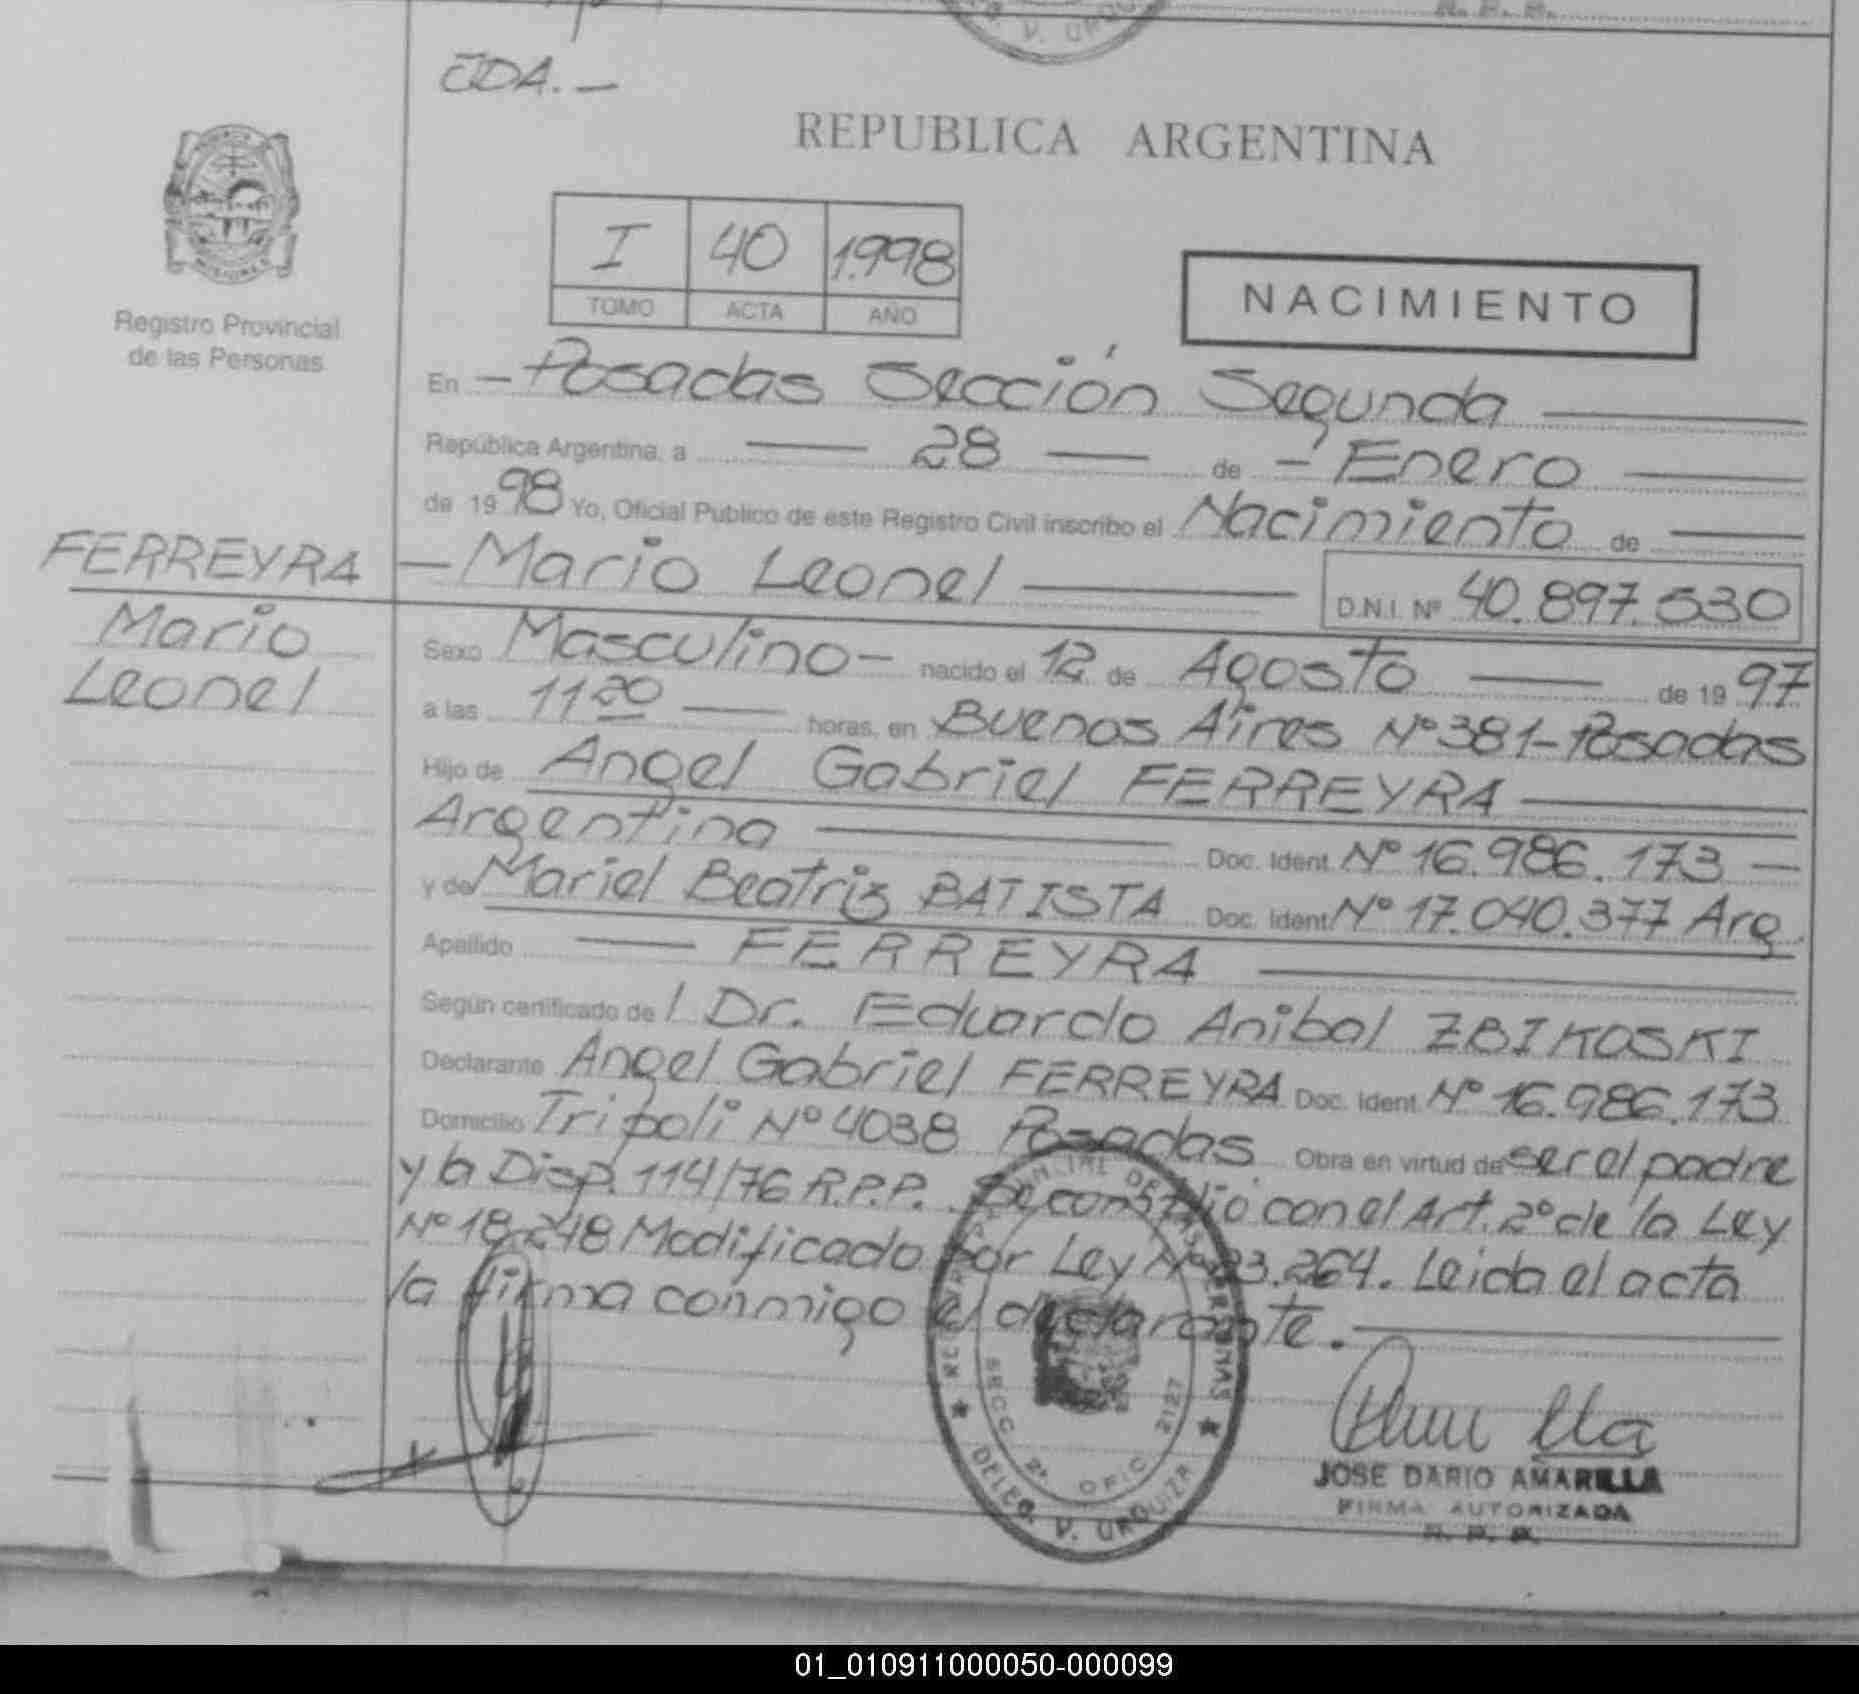 R. P. P.
V. URQU
JDA.-
REPUBLICA ARGENTINA
MISIONES
Registro Provincial
de las Personas
I 40 1.998
TOMO ACTA AÑO
NACIMIENTO
En - Posadas Sección Segunda
República Argentina, a 28 de - Enero
de 1998 Yo, Oficial Publico de este Registro Civil inscribo el Nacimiento de
FERREYRA
Mario
Leonel
- Mario Leonel D.N.I. Nº 40.897.530
Sexo Masculino- nacido el 12 de Agosto de 1997
a las 11 20 horas, en Buenos Aires Nº 381-Posadas
Hijo de Angel Gabriel FERREYRA
Argentina Doc. Ident. Nº 16.986.173 -
y de Mariel Beatriz BATISTA Doc. Ident. Nº 17.040.377 Arg.
Apellido FERREYRA
Según certificado de l Dr. Eduardo Anibal ZBIKOSKI
Declarante Angel Gabriel FERREYRA Doc. Ident. Nº 16.986.173
Domicilio Tripoli Nº 4038 Posadas Obra en virtud de ser el padre
y la Disp. 114/76 R.P.P. Se constituó con el Art. 2º de la Ley
Nº 18.248 Modificado por Ley Nº 23.264. Leida el acta
la firma conmigo el declarante.
REGISTRO DE LAS PERSONAS
SECC 2ª OFIC 2127
DELEG. V. URQUIZA
JOSE DARIO AMARILLA
FIRMA AUTORIZADA
R. P. P.
01_010911000050-000099